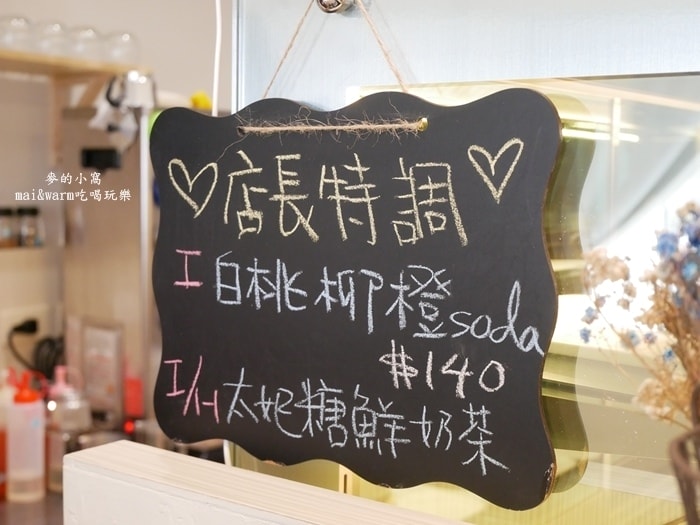 麥的小窩
mai&warm吃喝玩樂
店長特調
I 白桃柳橙soda
$140
I/H 太妃糖鮮奶茶